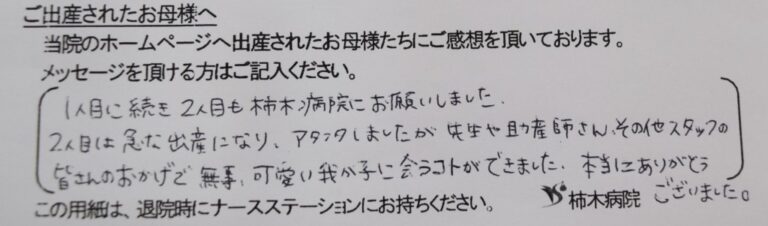 ご出産されたお母様へ
当院のホームページへ出産されたお母様たちにご感想を頂いております。
メッセージを頂ける方はご記入ください。
1人目に続き2人目も柿木病院にお願いしました。
2人目は急な出産になり、アタフタしましたが先生や助産師さん、その他スタッフの
皆さんのおかげで無事、可愛い我が子に会うコトができました。本当にありがとう
ございました。
この用紙は、退院時にナースステーションにお持ちください。
柿木病院